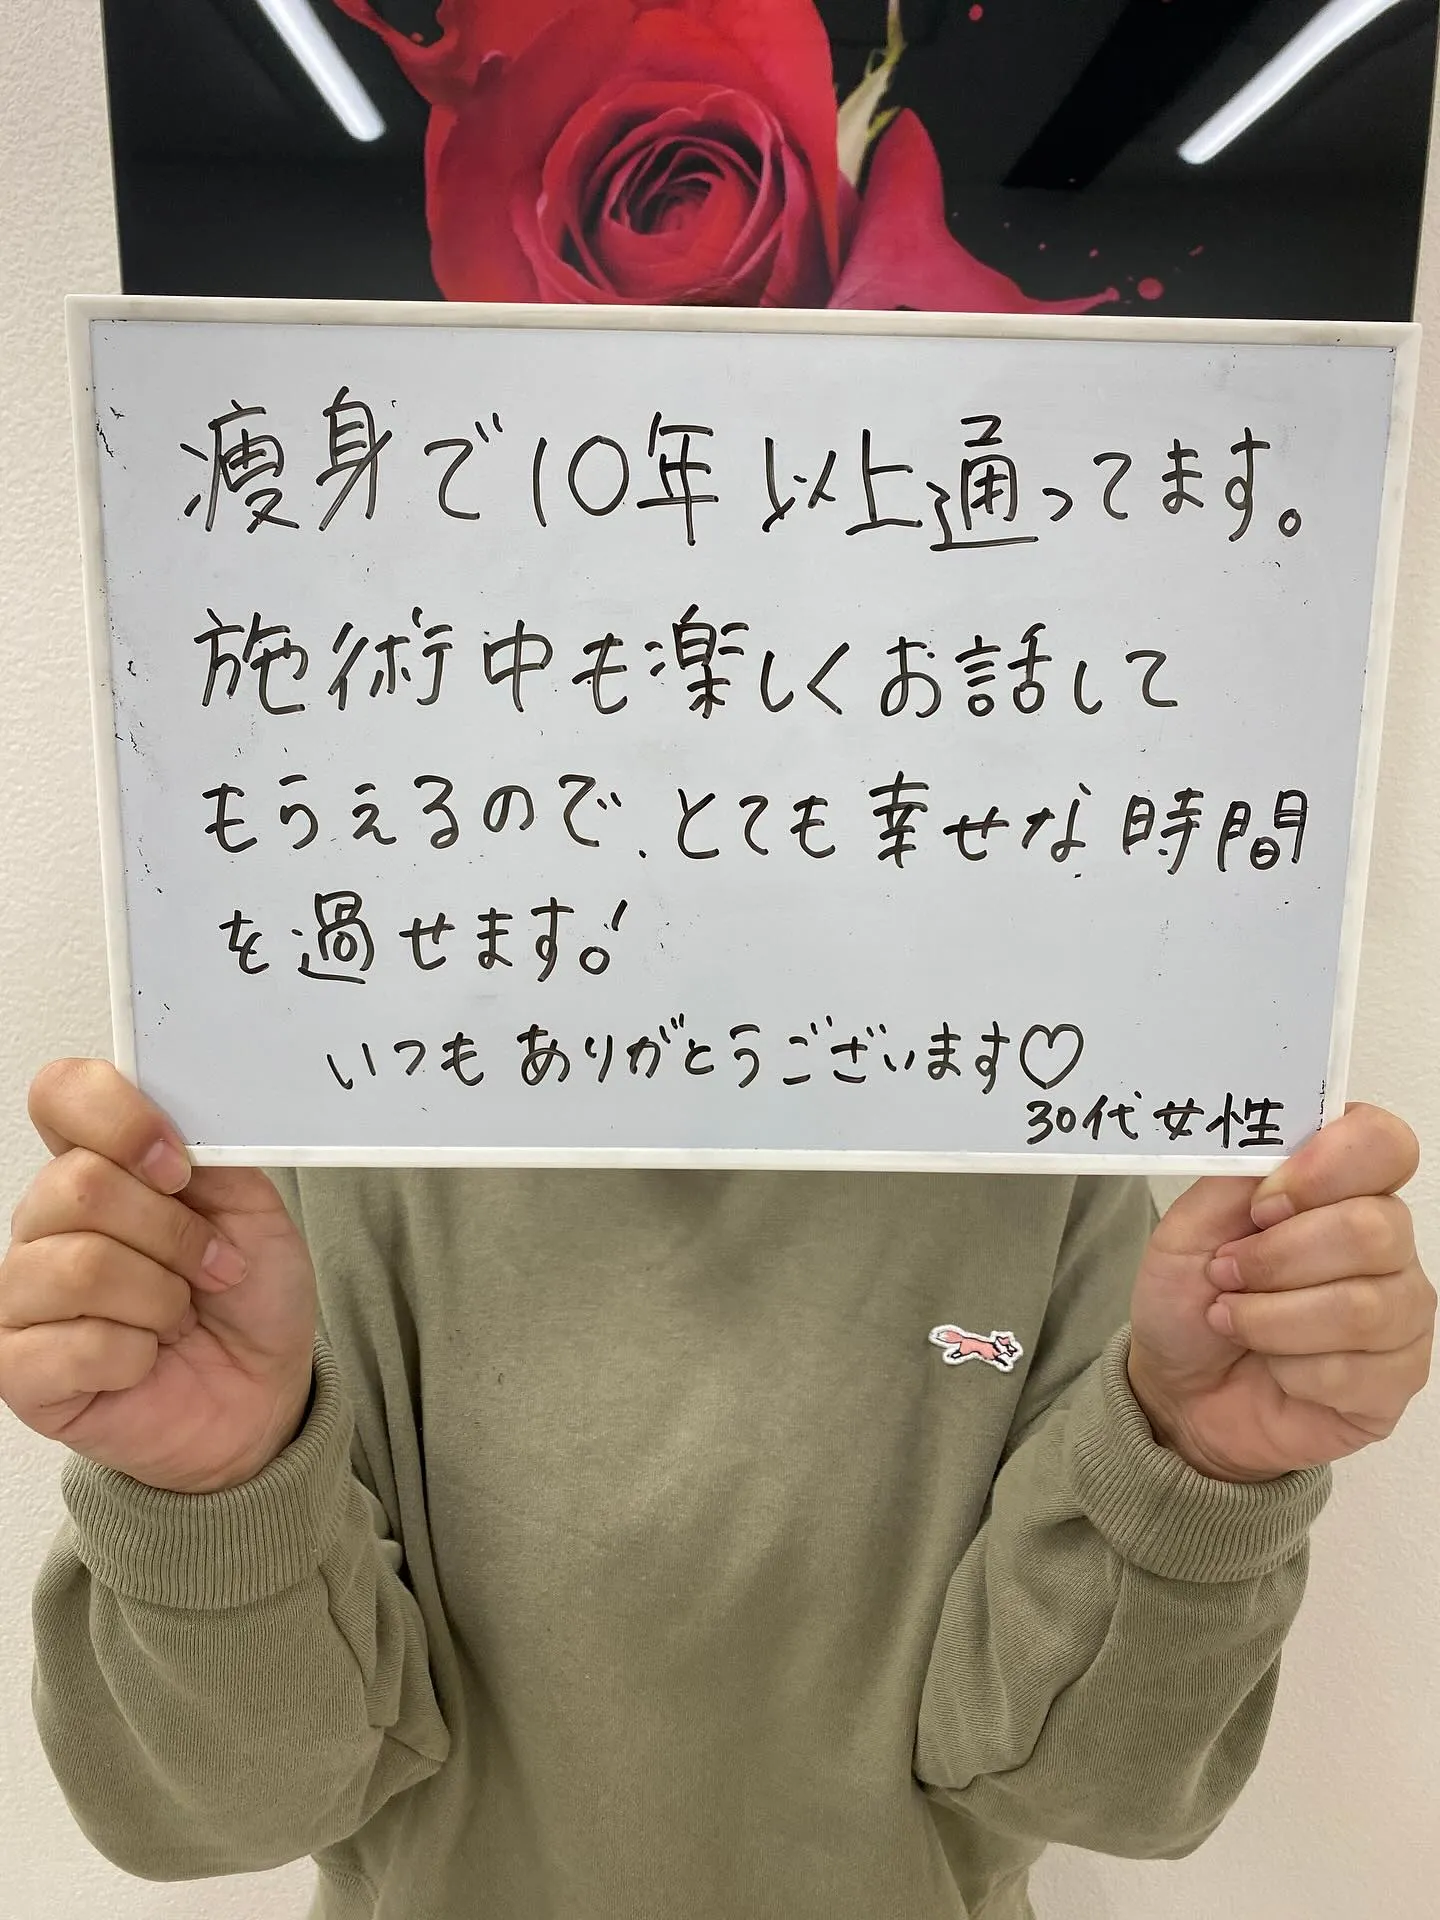 痩身で10年以上通ってます。
施術中も楽しくお話して
もらえるので、とても幸せな時間
を過せます!
いつもありがとうございます♡
30代女性